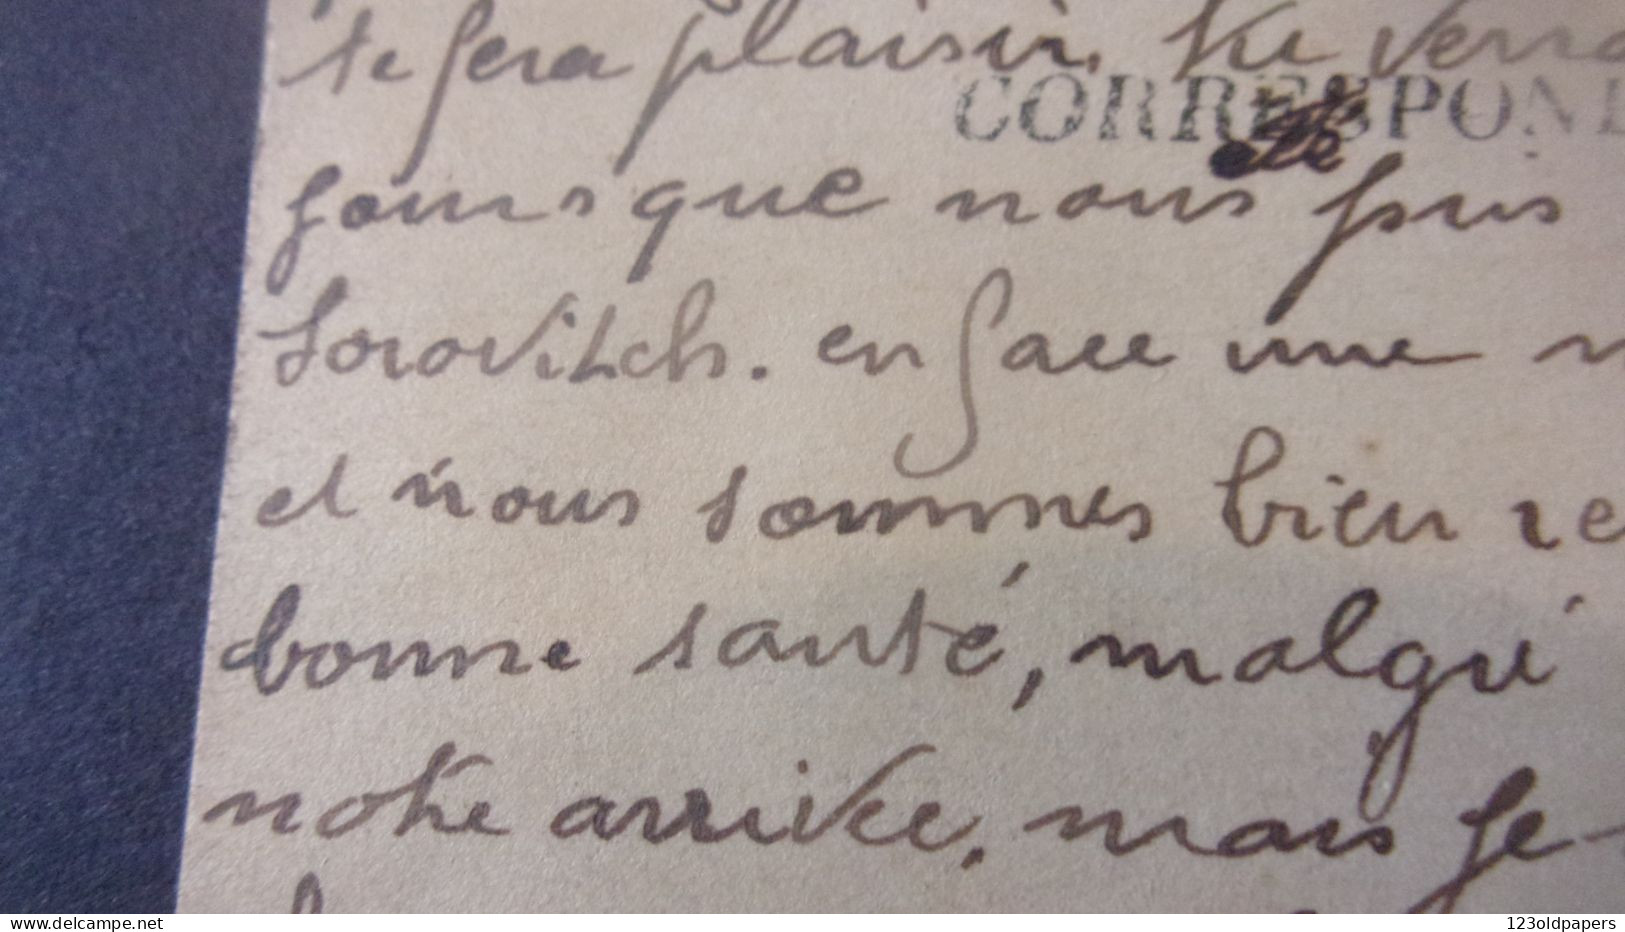 te fera plaisir, tu verra
CORRESPON
jours que nous pris
Sorovitch. en face une
et nous sommes bien re
bonne santé, malgré
notre arrivée, mais je
delcampe.net
123oldpapers